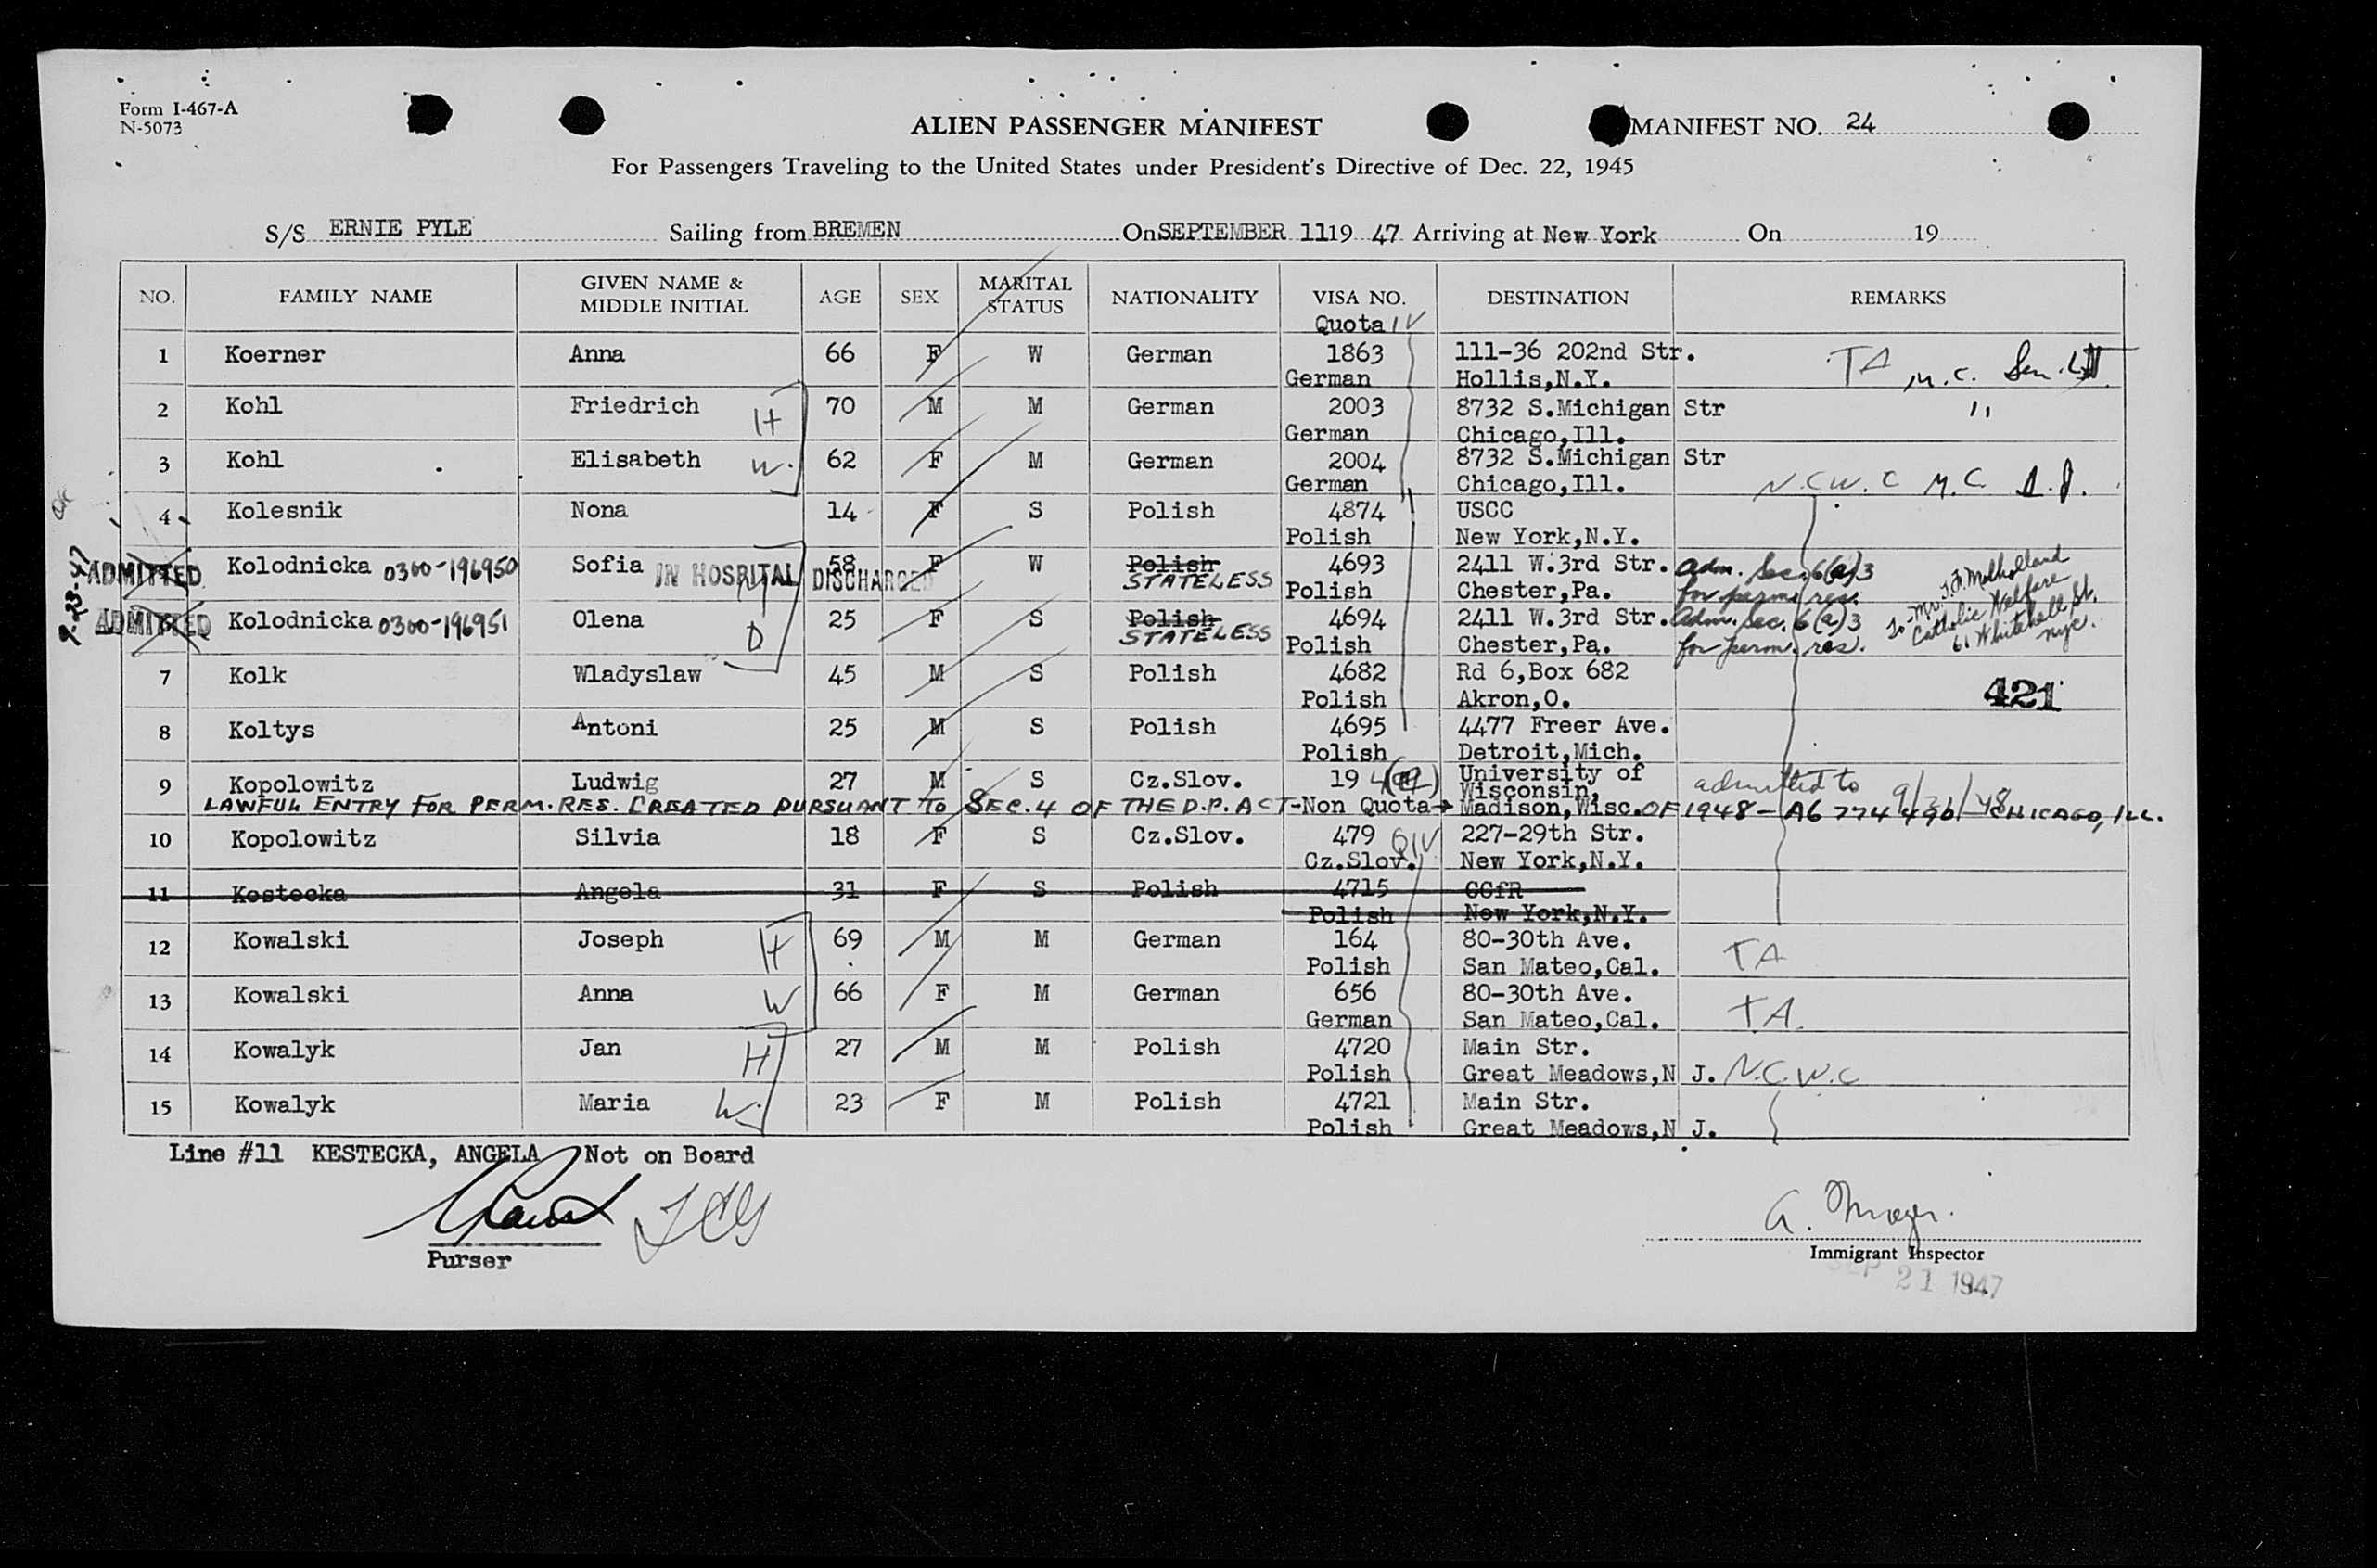 Form I-467-A
N-5073
ALIEN PASSENGER MANIFEST
MANIFEST NO. 24
For Passengers Traveling to the United States under President's Directive of Dec. 22, 1945
S/S ERNIE PYLE Sailing from BREMEN On SEPTEMBER 11 19 47 Arriving at New York On 19
NO. FAMILY NAME GIVEN NAME & MIDDLE INITIAL AGE SEX MARITAL STATUS NATIONALITY VISA NO. DESTINATION REMARKS
Quota IV
1 Koerner Anna 66 F W German 1863 111-36 202nd Str. TA M.C.
German Hollis,N.Y.
2 Kohl Friedrich H 70 M M German 2003 8732 S.Michigan Str "
German Chicago,Ill.
3 Kohl Elisabeth W. 62 F M German 2004 8732 S.Michigan Str
German Chicago,Ill. N.C.W.C M.C.
4 Kolesnik Nona 14 F S Polish 4874 USCC
Polish New York,N.Y.
9-23-47
ADMITTED Kolodnicka 0300-196950 Sofia IN HOSPITAL DISCHARGED M 58 F W Polish 4693 2411 W.3rd Str. adm. Sec. 6(a)3
STATELESS Polish Chester,Pa. for perm. res.
ADMITTED Kolodnicka 0300-196951 Olena D 25 F S Polish 4694 2411 W.3rd Str. Adm. Sec. 6(a)3
STATELESS Polish Chester,Pa. for perm. res.
To Mr. T.F. Mulholland
Catholic Welfare
61 Whitehall St.
nyc.
7 Kolk Wladyslaw 45 M S Polish 4682 Rd 6,Box 682
Polish Akron,O.
421
8 Koltys Antoni 25 M S Polish 4695 4477 Freer Ave.
Polish Detroit,Mich.
9 Kopolowitz Ludwig 27 M S Cz.Slov. 19 University of admitted to
Wisconsin,
LAWFUL ENTRY FOR PERM. RES. CREATED PURSUANT TO SEC. 4 OF THE D.P. ACT-Non Quota→ Madison,Wisc. OF 1948 - A6 774 496 - CHICAGO, ILL.
10 Kopolowitz Silvia 18 F S Cz.Slov. 479 QIV 227-29th Str.
Cz.Slov. New York,N.Y.
11 Kostecka Angela 31 F S Polish 4715 CCfR
Polish New York,N.Y.
12 Kowalski Joseph H 69 M M German 164 80-30th Ave. TA
Polish San Mateo,Cal.
13 Kowalski Anna W 66 F M German 656 80-30th Ave. T.A.
German San Mateo,Cal.
14 Kowalyk Jan H 27 M M Polish 4720 Main Str.
Polish Great Meadows,N J. N.C.W.C
15 Kowalyk Maria W. 23 F M Polish 4721 Main Str.
Polish Great Meadows,N J.
Line #11 KESTECKA, ANGELA Not on Board
Purser
Immigrant Inspector
SEP 21 1947